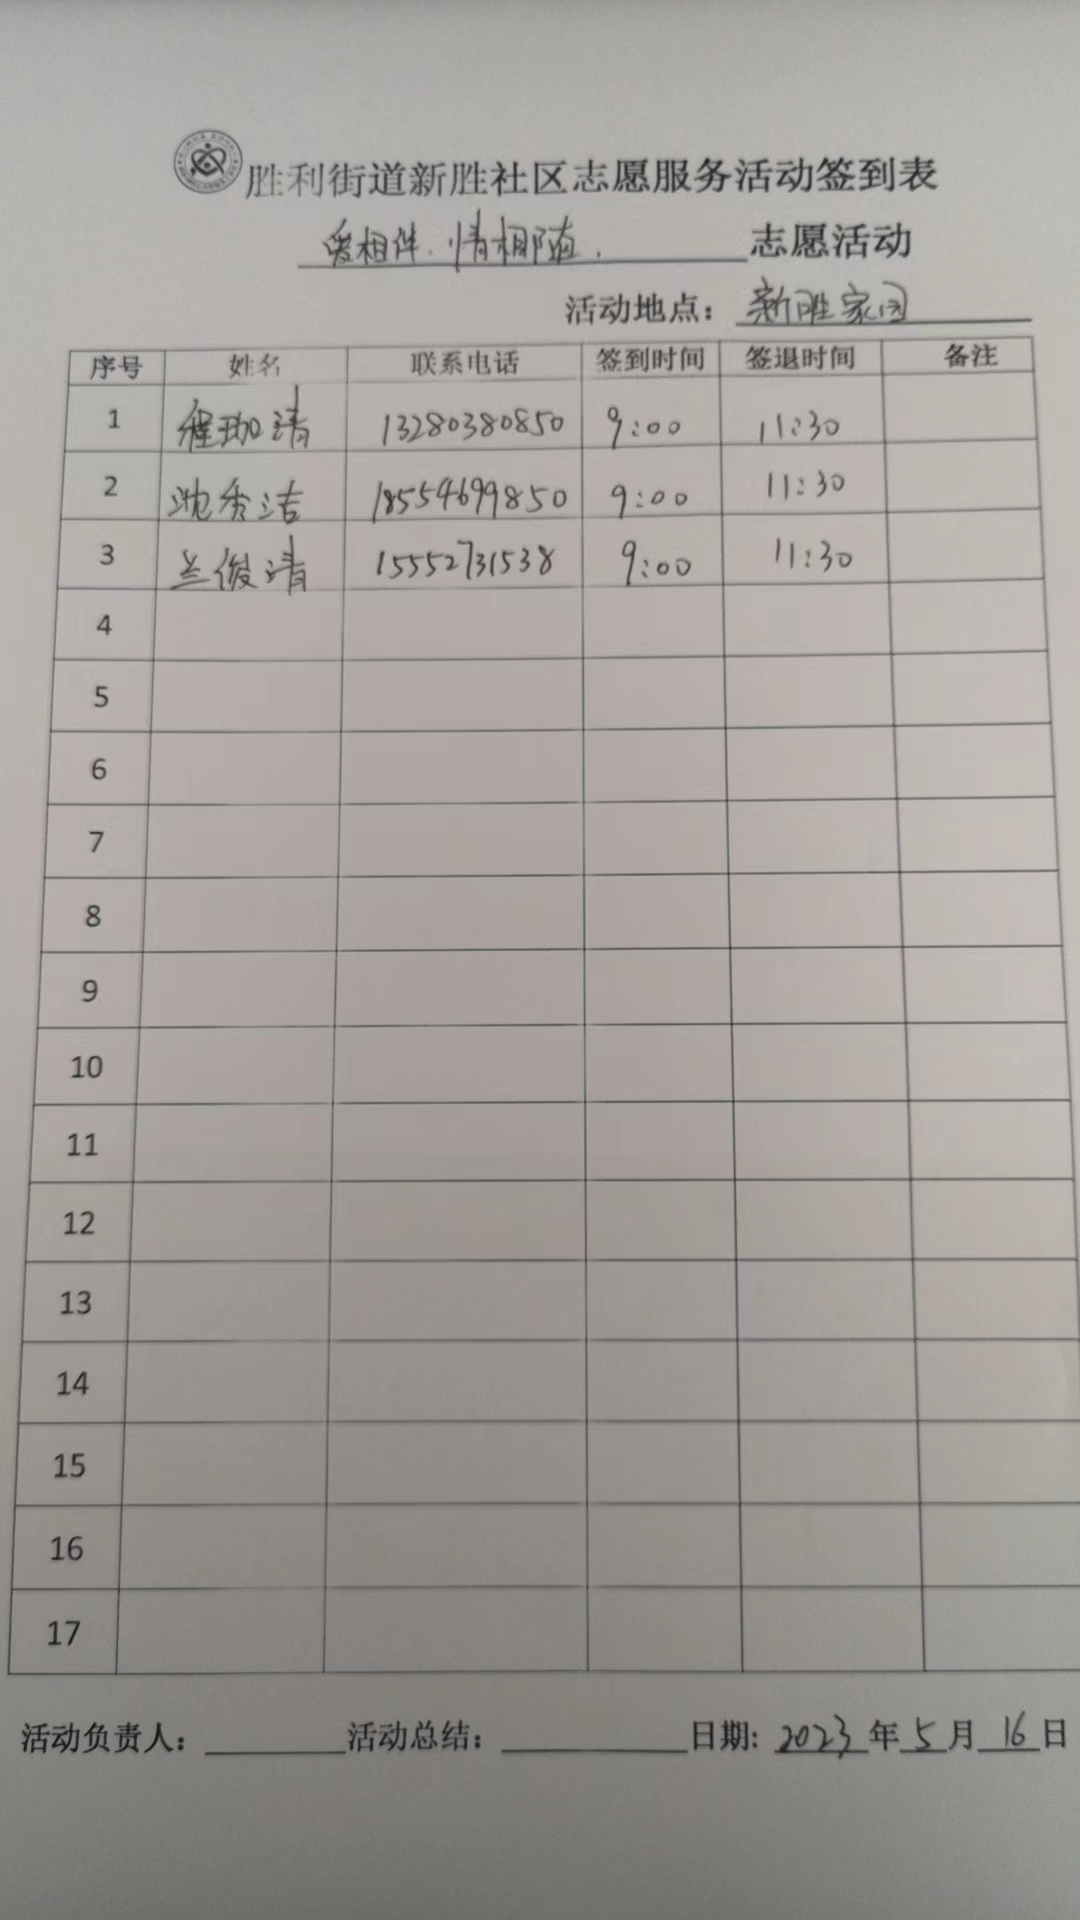 胜利街道新胜社区志愿服务活动签到表
爱相伴.情相随. 志愿活动
活动地点：新胜家园
序号 姓名 联系电话 签到时间 签退时间 备注
1 13280380850 9:00 11:30
2 沈秀洁 18554699850 9:00 11:30
3 兰俊清 15552731538 9:00 11:30
4
5
6
7
8
9
10
11
12
13
14
15
16
17
活动负责人： 活动总结： 日期: 2023年5月16日